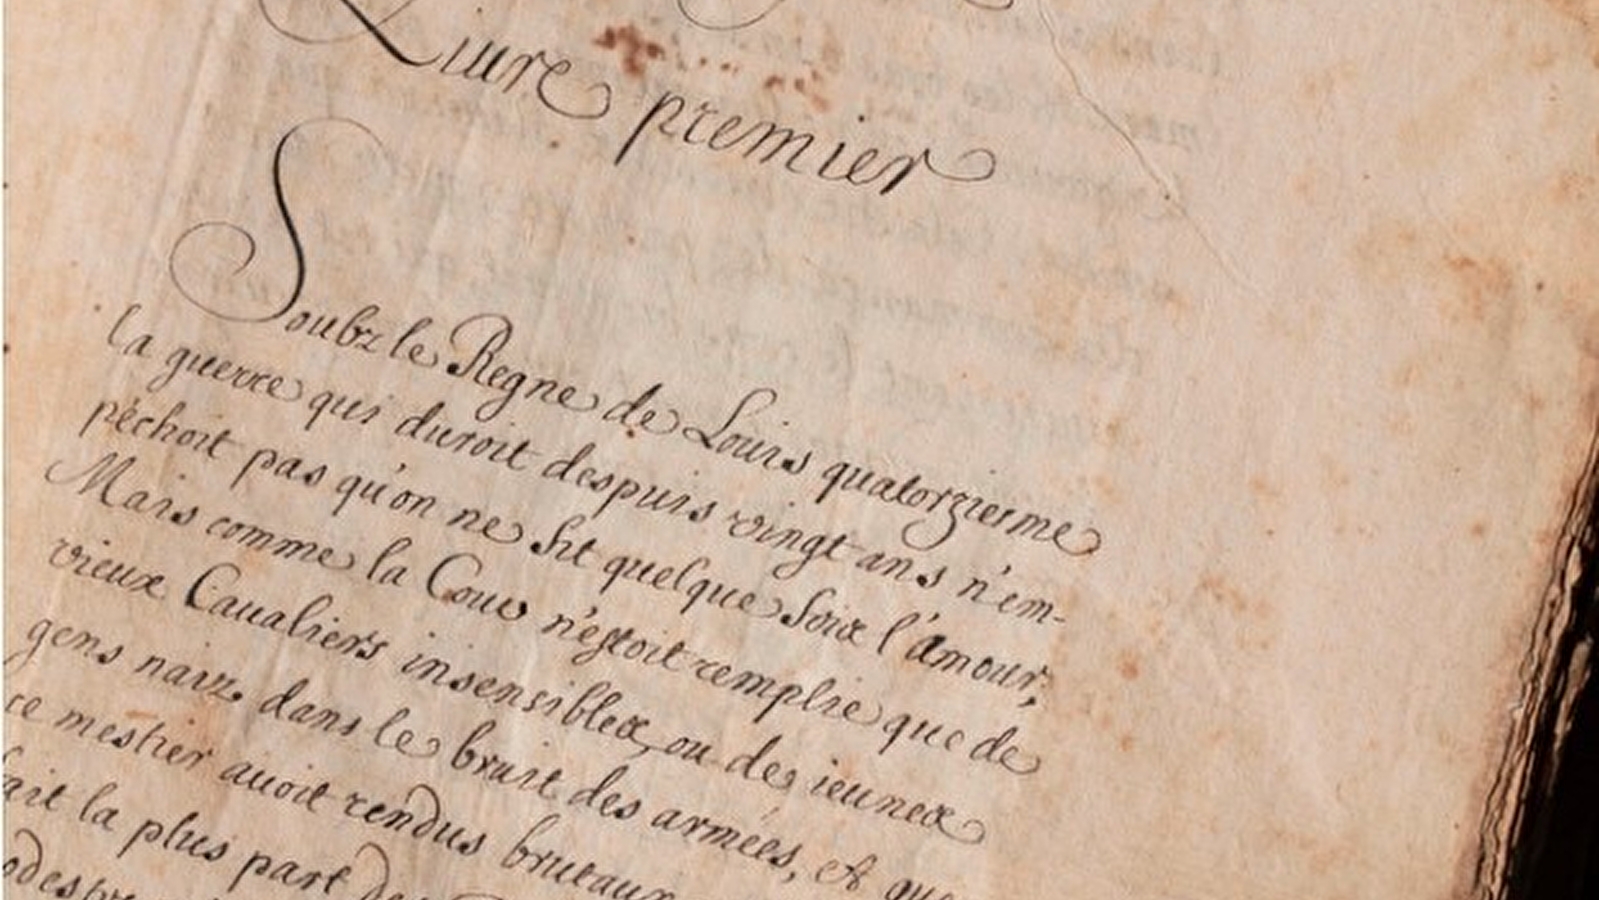 Liure premier
Soubz le Regne de Louis quatorziesme
la guerre qui duroit despuis vingt ans n'em-
pèchoit pas qu'on ne fit quelque fois l'amour;
Mais comme la Cour n'estoit remplie que de
vieux Caualiers insensibles, ou de ieunes
gens naiz dans le bruit des armées, et que
ce mestier auoit rendus brutaux
fait la plus part des